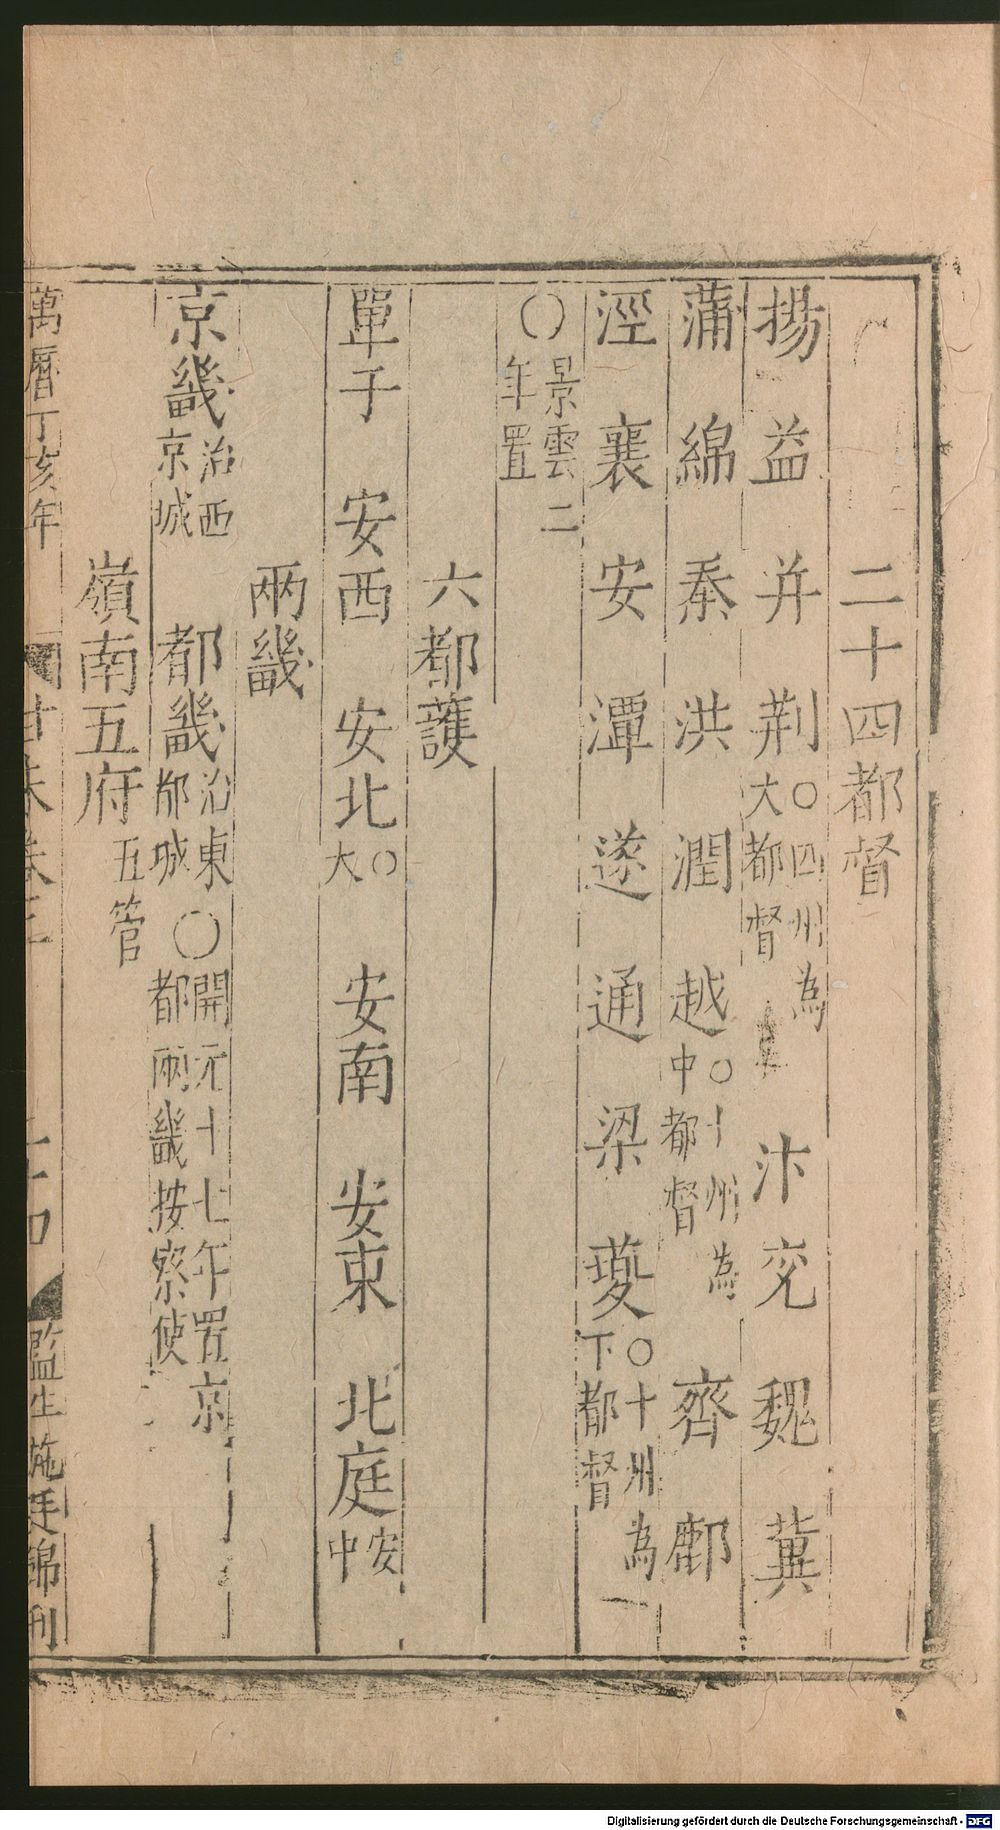 二十四都督
揚 益 并 荆 ○四州為大都督 汴 兗 魏 冀
蒲 綿 秦 洪 潤 越 ○十州為中都督 齊 鄜
涇 襄 安 潭 遂 通 梁 夔 ○十州為下都督
○景雲二年置
六都護
單子 安西 安北 ○大 安南 安東 北庭 安中
兩畿
京畿 治西京城 都畿 治東都城 ○開元十七年置京都兩畿按察使
嶺南五府 五管
萬曆丁亥年 監生施廷錦刊
Digitalisierung gefördert durch die Deutsche Forschungsgemeinschaft - DFG